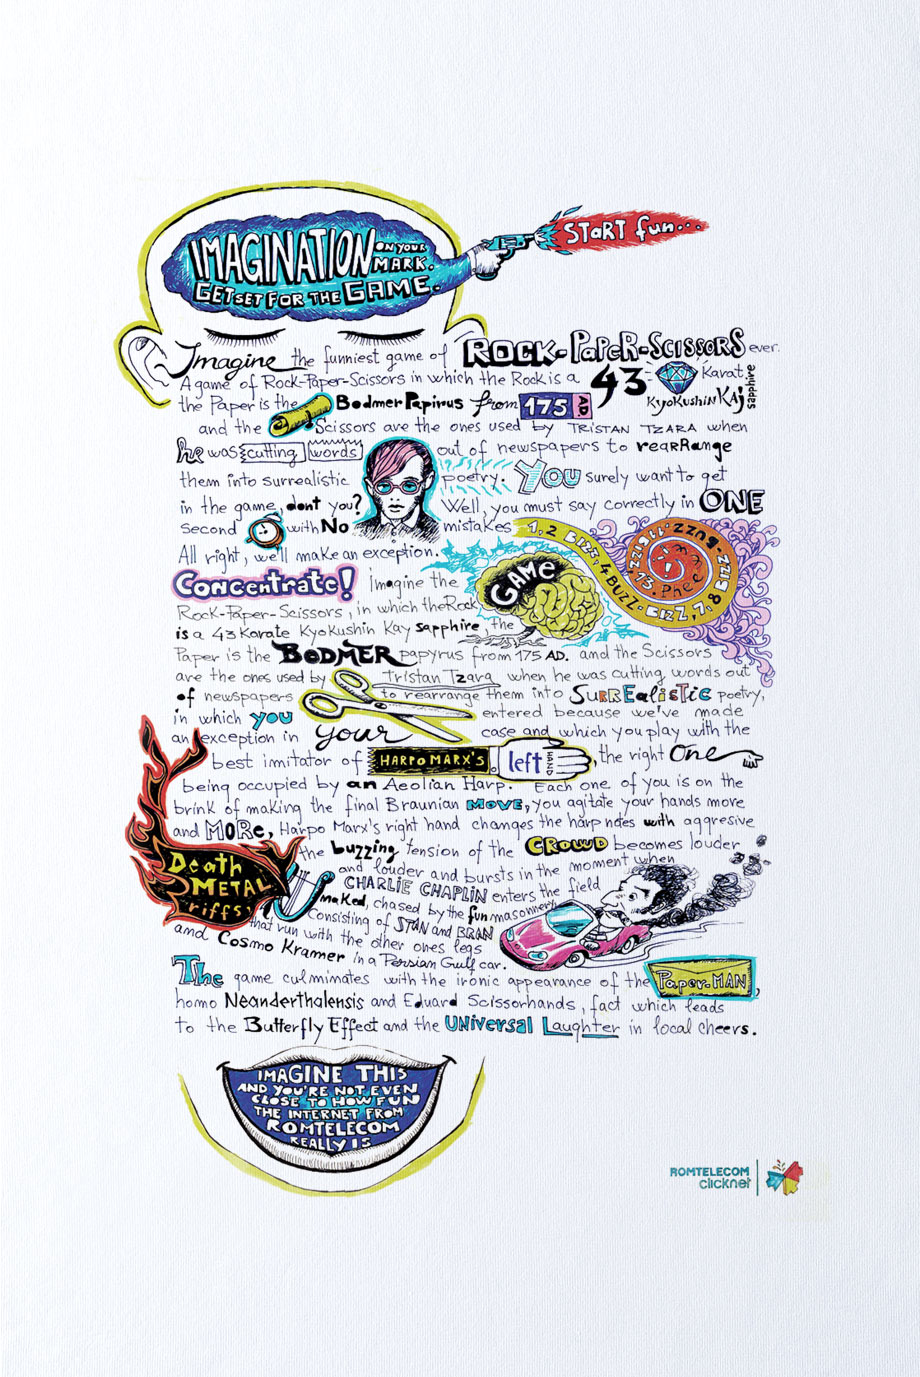 IMAGINATION ON YOUR MARK.
GET SET FOR THE GAME.
START fun...
Imagine the funniest game of ROCK-PAPER-SCISSORS ever.
A game of Rock-Paper-Scissors in which the Rock is a 43 Karat
KyoKushin Kaj sapphire
the Paper is the Bodmer Papirus from 175 AD
and the Scissors are the ones used by TRISTAN TZARA when
he was cutting words out of newspapers to rearrange
them into surrealistic poetry. You surely want to get
in the game, dont you? Well, you must say correctly in ONE
second with No mistakes 1, 2 BIZZ, 4 BUZZ, BIZZ, 7, 8 BIZZ
13. Phee
All right, we'll make an exception.
GAME
Concentrate! Imagine the
Rock-Paper-Scissors, in which the Rock
is a 43 Karate KyoKushin Kay sapphire, the
Paper is the BODMER papyrus from 175 AD. and the Scissors
are the ones used by Tristan Tzara when he was cutting words out
of newspapers to rearrange them into SURREalisTic poetry,
in which you entered because we've made
an exception in your case and which you play with the
best imitator of HARPO MARX'S left HAND, the right One
being occupied by an Aeolian Harp. Each one of you is on the
brink of making the final Braunian MOVE, you agitate your hands more
and MORe, Harpo Marx's right hand changes the harp notes with aggresive
Death METAL riffs,
the buzzing tension of the CROWD becomes louder
and louder and bursts in the moment when
CHARLIE CHAPLIN enters the field
naked, chased by the fun masonnery
Consisting of STAN and BRAN
that run with the other ones legs
and Cosmo Kramer in a Persian Gulf car.
The game culminates with the ironic appearance of the Paper-MAN,
homo Neanderthalensis and Eduard Scissorhands, fact which leads
to the Butterfly Effect and the UNIVersal Laughter in local cheers.
IMAGINE THIS
AND YOU'RE NOT EVEN
CLOSE TO HOW FUN
THE INTERNET FROM
ROMTELECOM
REALLY IS
ROMTELECOM
clicknet